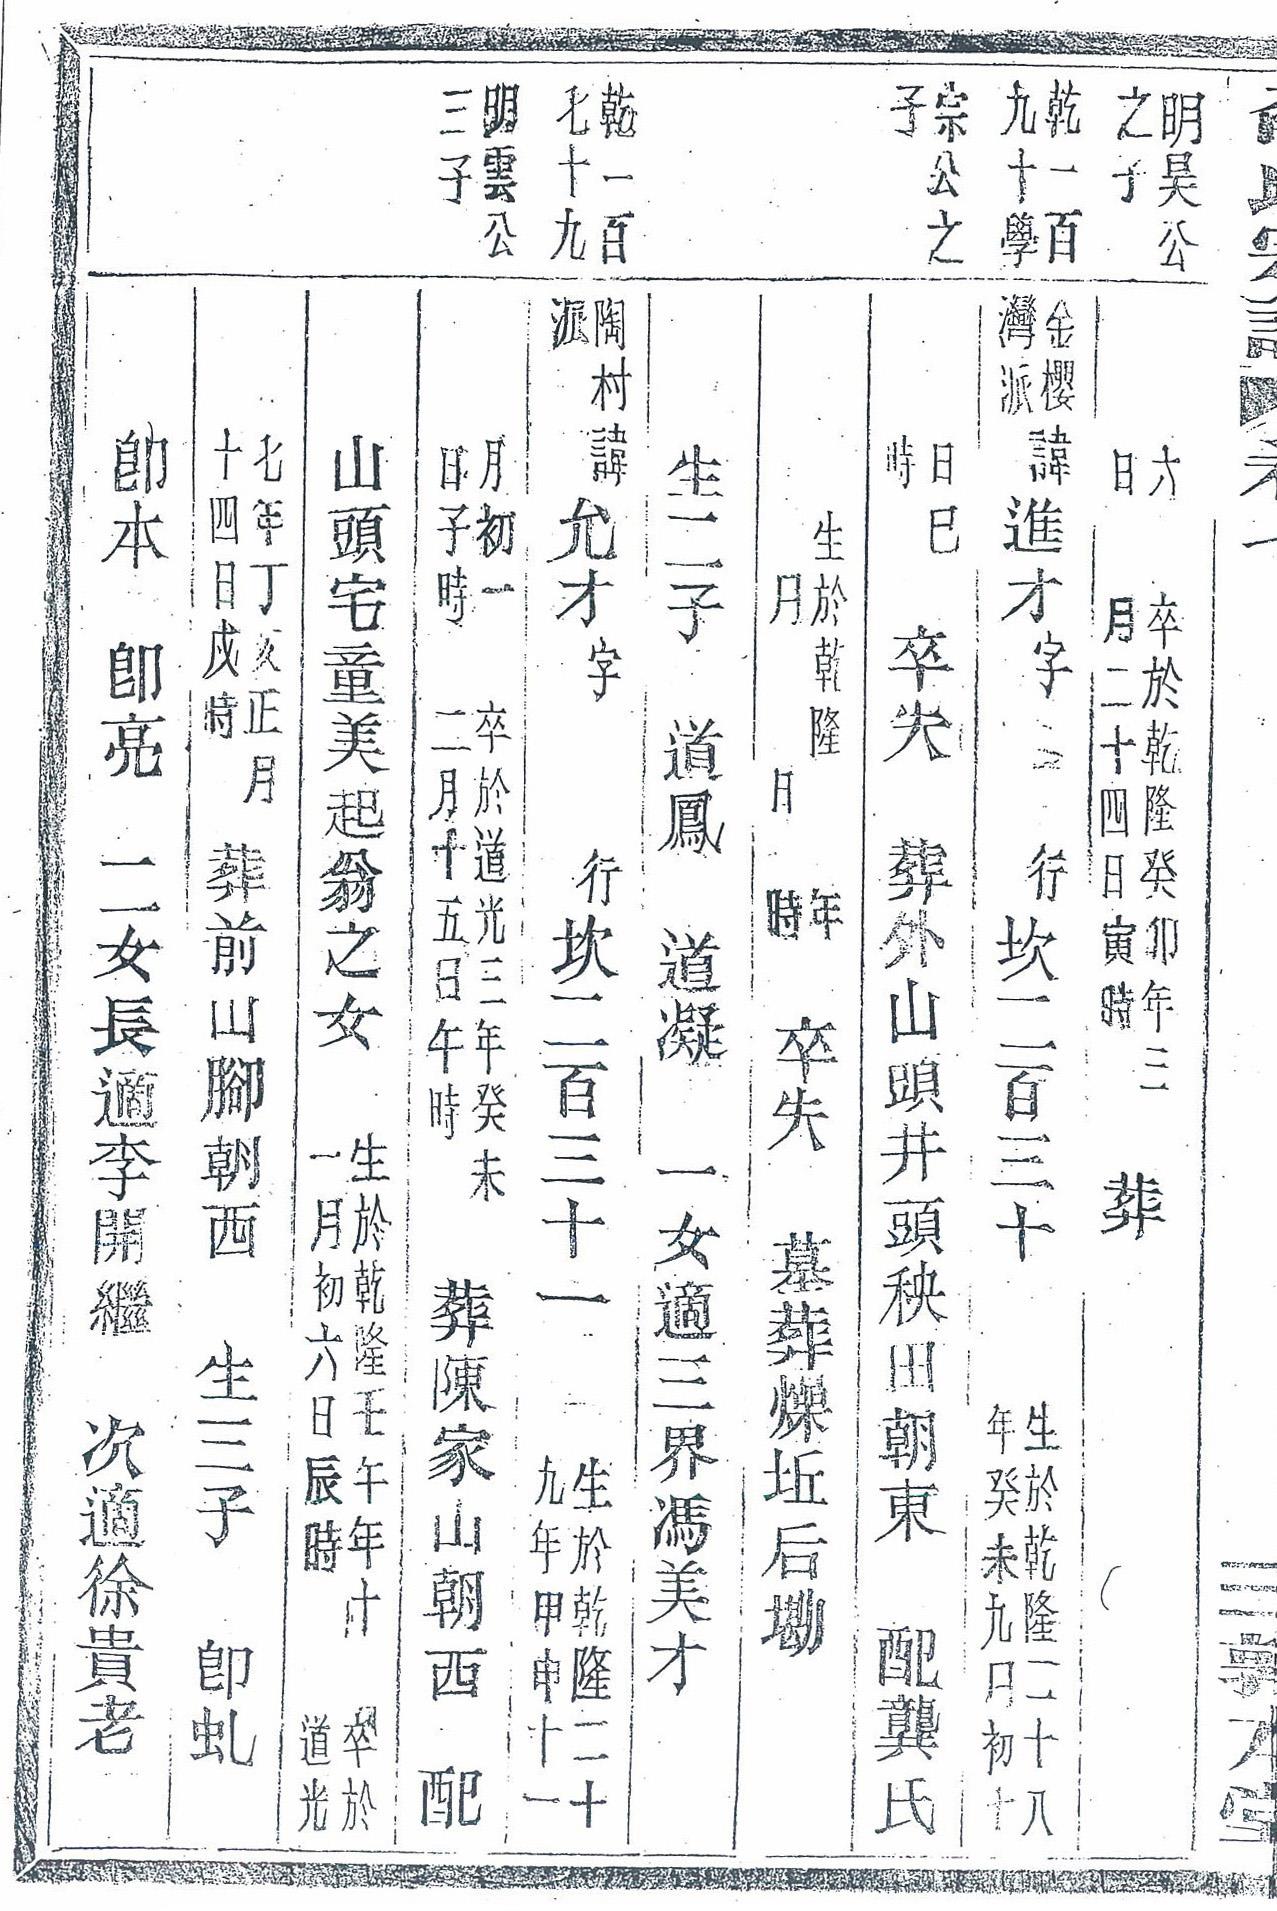 氏宗譜 卷一
敦本堂
明昊公
之子
六
日
卒於乾隆癸卯年三
月二十四日寅時
葬
乾一百
九十學
金櫻
灣派
諱進才字
行坎二百三十
生於乾隆二十八
年癸未九月初十
宗公之
子
日巳
時
卒失 葬外山頭井頭秧田朝東 配龔氏
生於乾隆 年
月 日 時
卒失 墓葬爍坵后坳
生二子 道鳳 道凝 一女適三界馮美才
乾一百
七十九
陶村
派
諱允才字
行坎二百三十一
生於乾隆二十
九年甲申十一
明雲公
三子
月初一
日子時
卒於道光三年癸未
二月十五日午時
葬陳家山朝西 配
山頭宅童美起翁之女
生於乾隆壬午年十
一月初六日辰時
卒於
道光
七年丁亥正月
十四日戌時
葬前山腳朝西 生三子 卽虬
卽本 卽亮 二女長適李開繼 次適徐貴老